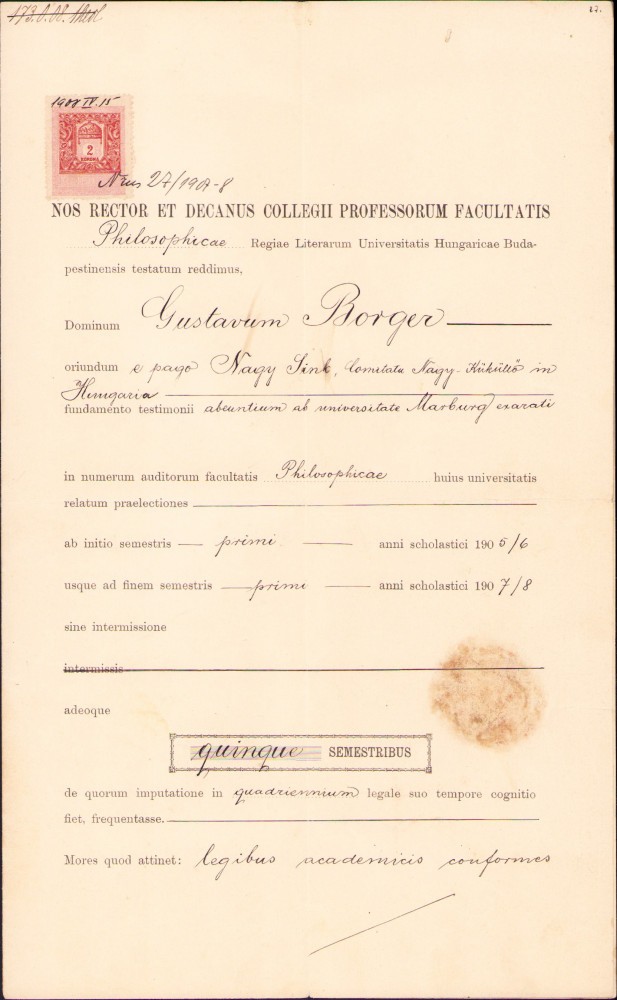 27.
1908 IV. 15
2
KORONA
Nrus 27/1907-8
NOS RECTOR ET DECANUS COLLEGII PROFESSORUM FACULTATIS
Philosophicae Regiae Literarum Universitatis Hungaricae Buda-
pestinensis testatum reddimus,
Dominum Gustavum Borger
oriundum e pago Nagy Sink, Comitatu Nagy-Küküllő in
Hungaria
fundamento testimonii abeuntium ab universitate Marburg exarati
in numerum auditorum facultatis Philosophicae huius universitatis
relatum praelectiones
ab initio semestris — primi — anni scholastici 1905/6
usque ad finem semestris — primi — anni scholastici 1907/8
sine intermissione
intermissis
adeoque
quinque SEMESTRIBUS
de quorum imputatione in quadriennium legale suo tempore cognitio
fiet, frequentasse.
Mores quod attinet: legibus academicis conformes